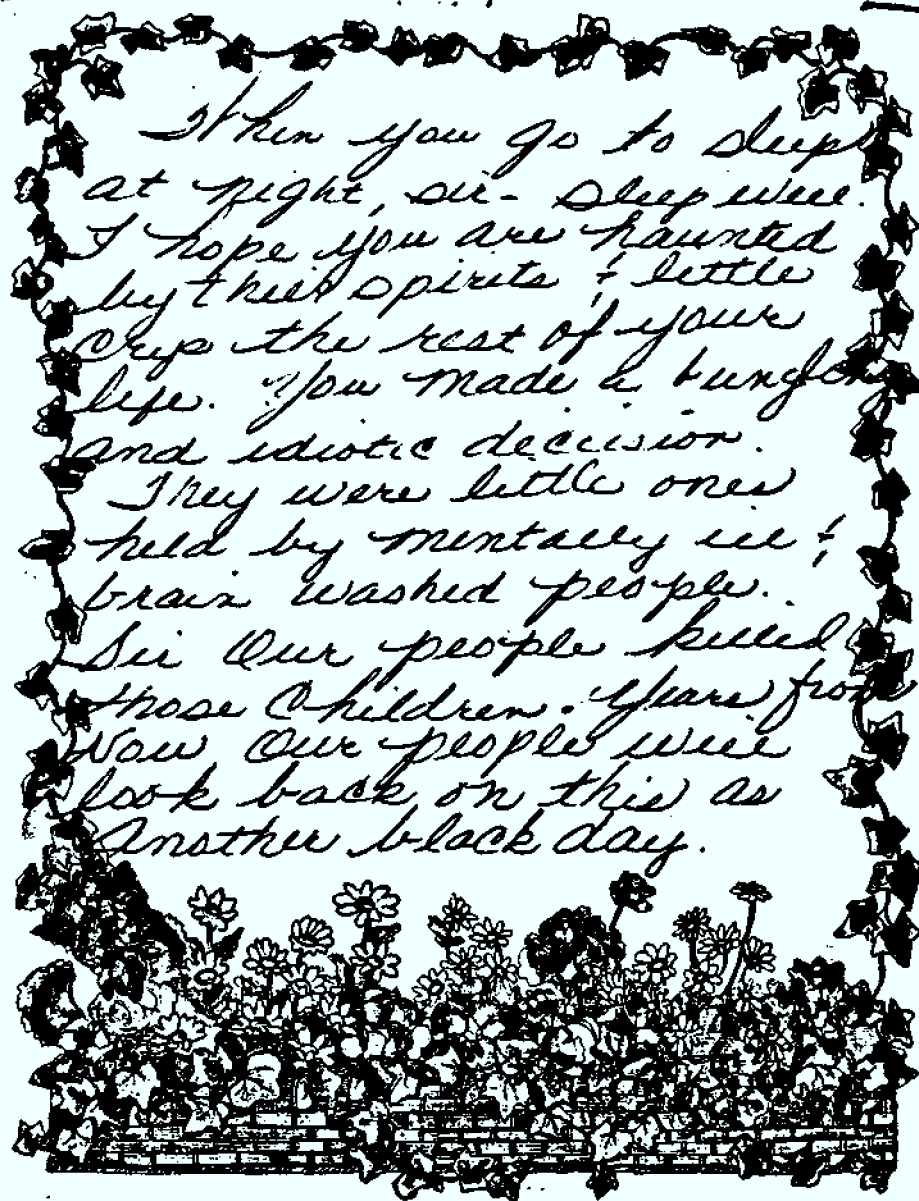 When you go to sleep
at night, sir - sleep well.
I hope you are haunted
by their spirits & little
the rest of your
life. You made a bungling
and idiotic decision.
They were little ones
held by mentally ill &
brain washed people.
Sir Our people killed
those Children. Years from
Now Our people will
look back on this as
Another black day.